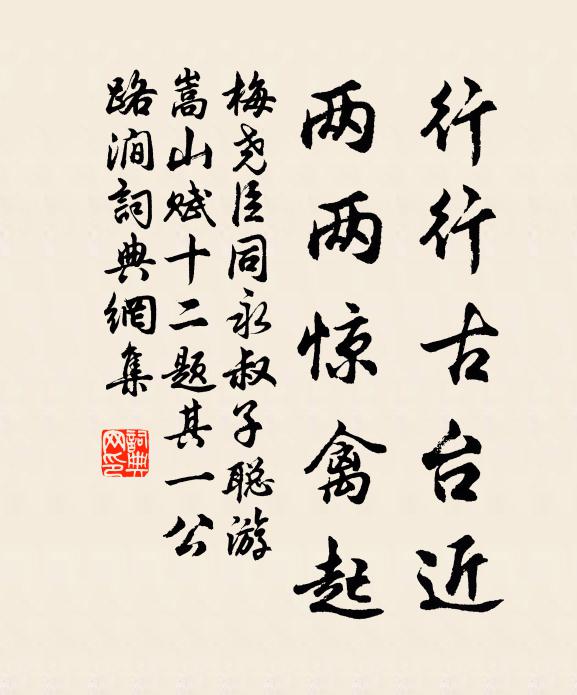 行行古台近
两两惊禽起
梅尧臣同永叔子聪游
嵩山赋十二题其一公
路涧詞典網集
詞典網印